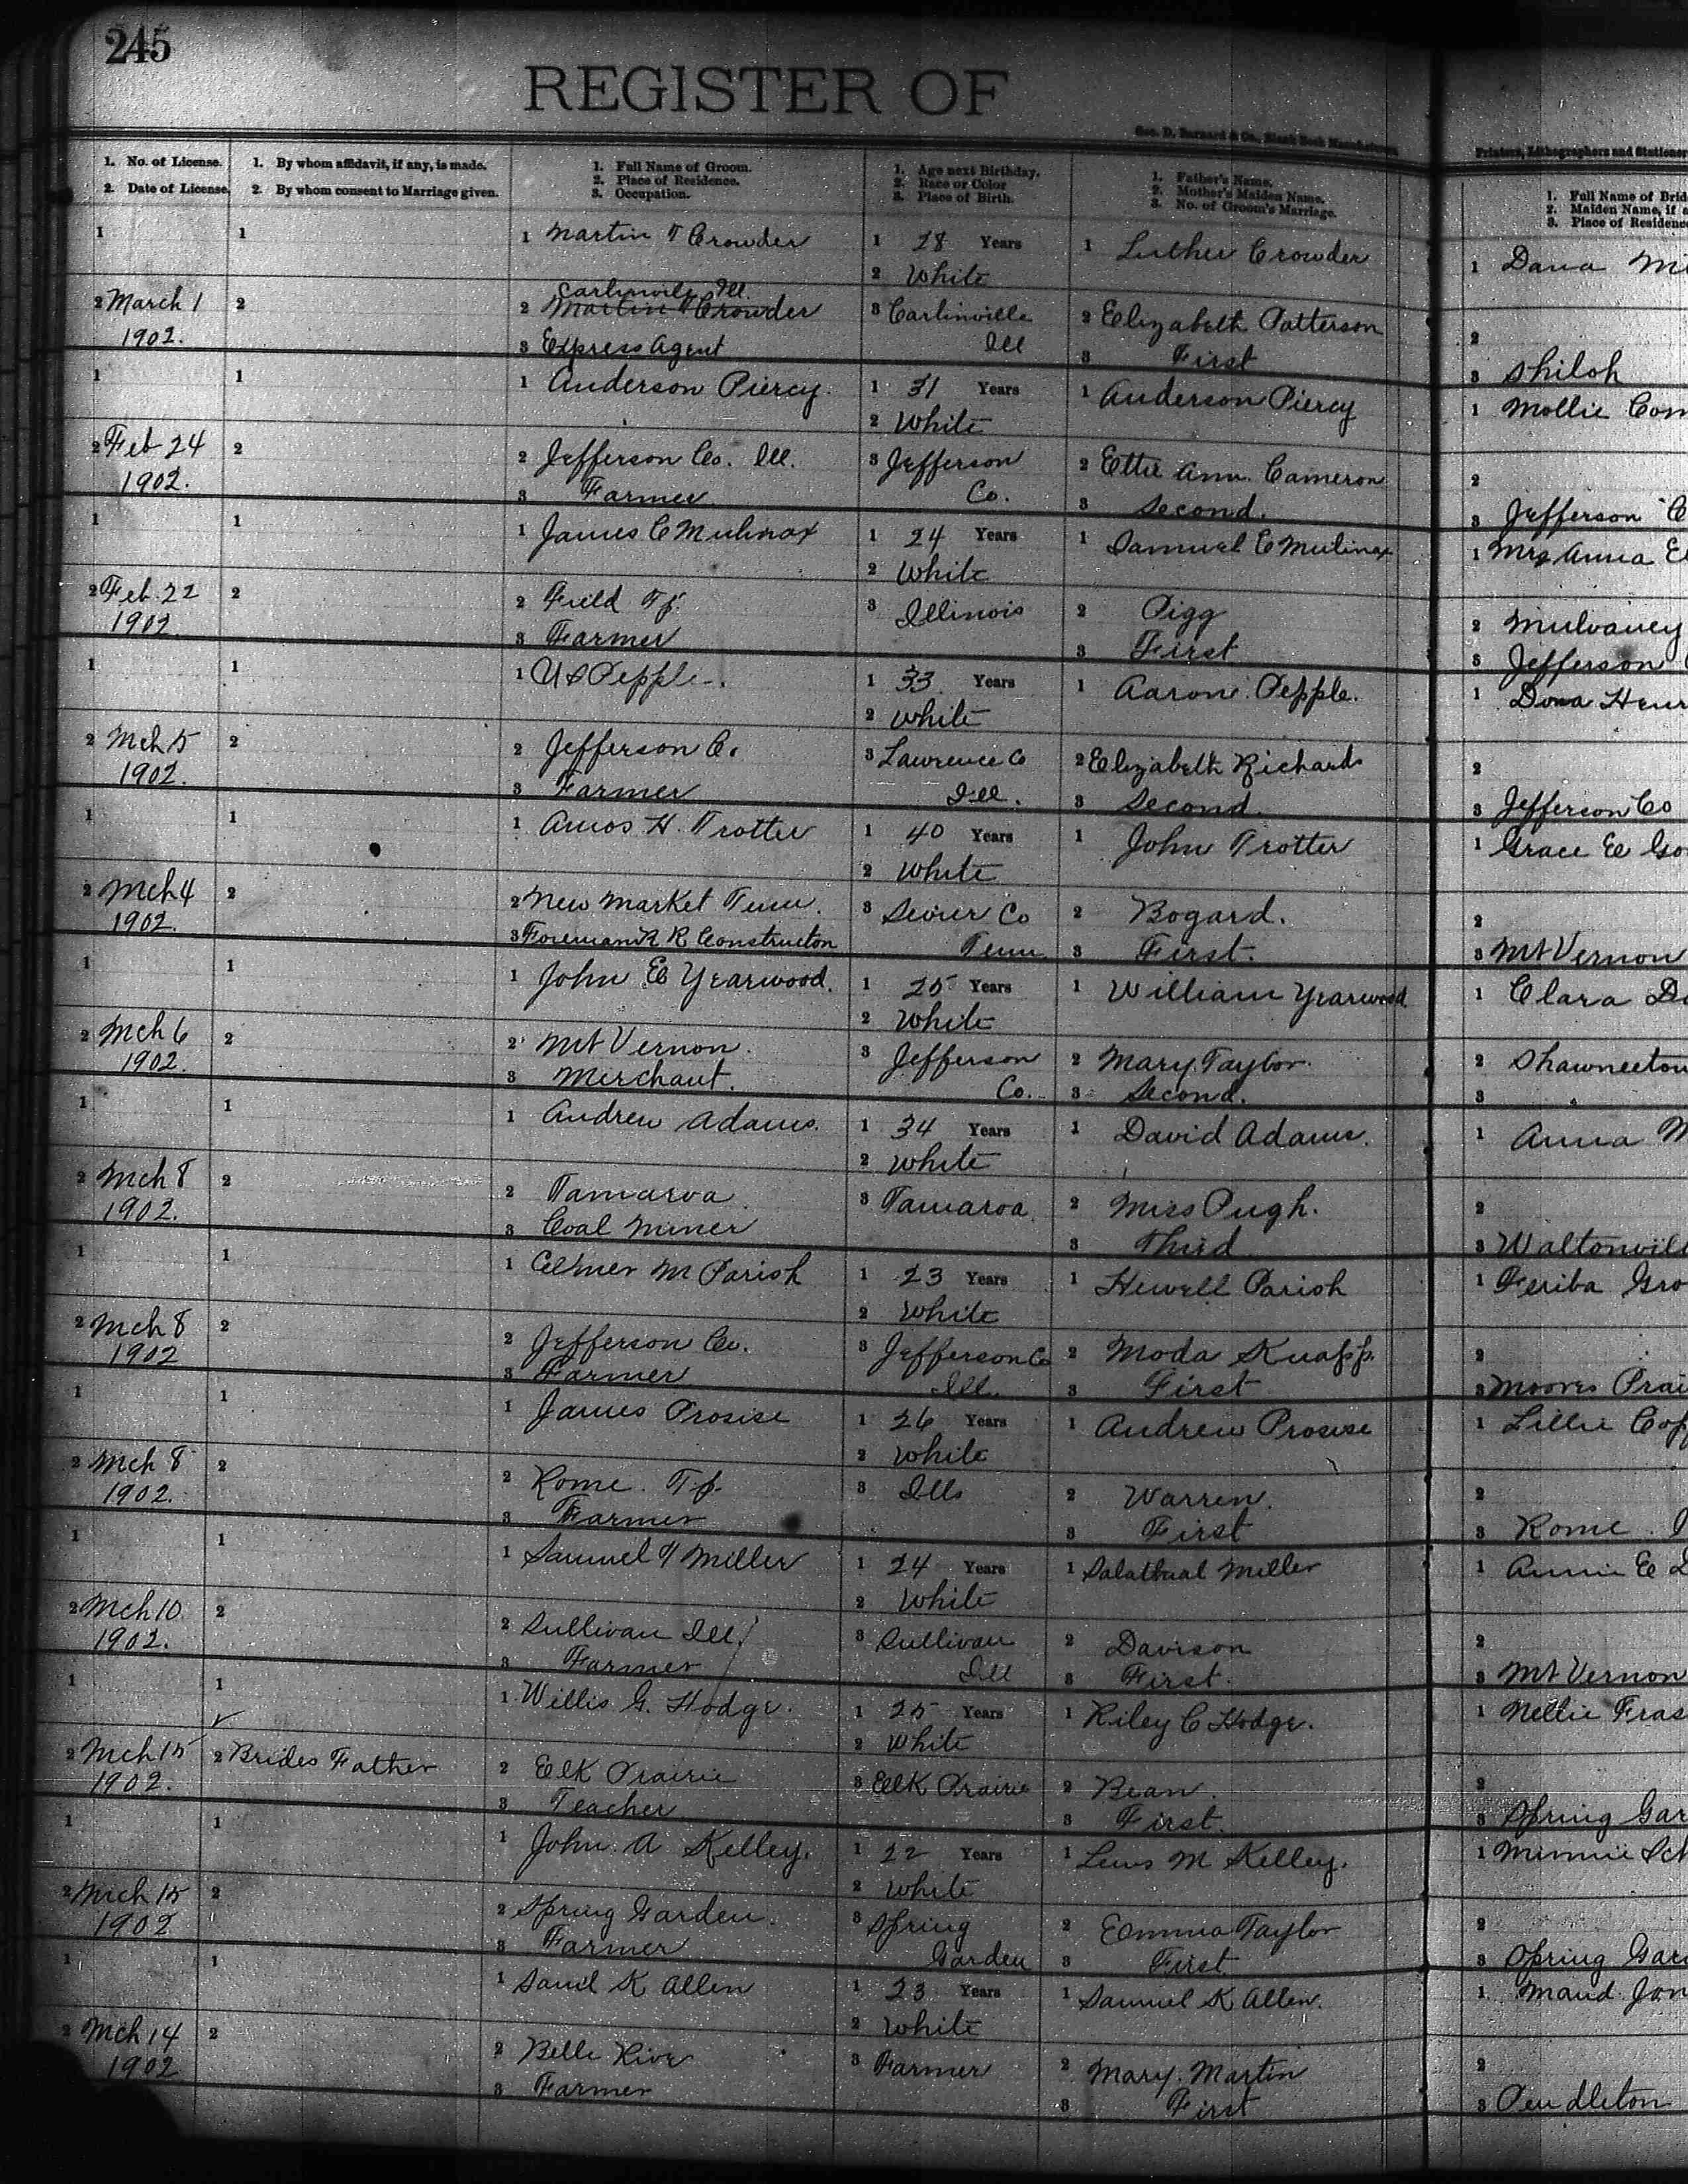 245
REGISTER OF
Geo. D. Barnard & Co., Blank Book Manufacturers
Printers, Lithographers and Stationer
1. No. of License.
2. Date of License.
1. By whom affidavit, if any, is made.
2. By whom consent to Marriage given.
1. Full Name of Groom.
2. Place of Residence.
3. Occupation.
1. Age next Birthday.
2. Race or Color
3. Place of Birth.
1. Father's Name.
2. Mother's Maiden Name.
3. No. of Groom's Marriage.
1. Full Name of Brid
2. Maiden Name, if a
3. Place of Residenc
1 1 1 Martin T Crowder 1 28 Years 1 Luther Crowder 1 Dana Mi
2 White
Carlinville Ill.
2 March 1 2 2 Martin T Crowder 3 Carlinville 2 Elizabeth Patterson 2
1902. 3 Express Agent Ill 3 First 3 Shiloh
1 1 1 Anderson Piercy. 1 31 Years 1 Anderson Piercy 1 Mollie Com
2 White
2 Feb 24 2 2 Jefferson Co. Ill. 3 Jefferson 2 Ettie Ann Cameron 2
1902. 3 Farmer Co. 3 Second. 3 Jefferson C
1 1 1 James C Mulinax 1 24 Years 1 Samuel C Mulinax 1 Mrs Anna El
2 White
2 Feb. 22 2 2 Field Tp. 3 Illinois 2 Pigg 2 Mulvaney
1902. 3 Farmer 3 First 3 Jefferson
1 1 1 U S Pepple. 1 33 Years 1 Aaron Pepple. 1 Dona Henr
2 White
2 Mch 5 2 2 Jefferson C. 3 Lawrence Co 2 Elizabeth Richards 2
1902. 3 Farmer Ill. 3 Second. 3 Jefferson Co
1 1 1 Amos H. Trotter 1 40 Years 1 John Trotter 1 Grace E Go
2 White
2 Mch 4 2 2 New Market Tenn. 3 Sevier Co 2 Bogard. 2
1902. 3 Foreman R R Construction Tenn 3 First. 3 Mt Vernon
1 1 1 John E Yearwood. 1 25 Years 1 William Yearwood 1 Clara Da
2 White
2 Mch 6 2 2 Mt Vernon. 3 Jefferson 2 Mary Taylor. 2 Shawneetow
1902. 3 Merchant. Co. 3 Second. 3
1 1 1 Andrew Adams. 1 34 Years 1 David Adams. 1 Anna M
2 White
2 Mch 8 2 2 Tamaroa 3 Tamaroa 2 Miss Pugh. 2
1902. 3 Coal Miner 3 Third 3 Waltonvill
1 1 1 Elmer M Parish 1 23 Years 1 Hewell Parish 1 Feriba Gro
2 White
2 Mch 8 2 2 Jefferson Co. 3 Jefferson Co 2 Moda Knapp. 2
1902 3 Farmer Ill. 3 First 3 Moores Prai
1 1 1 James Prosise 1 26 Years 1 Andrew Prosise 1 Lillie Cop
2 White
2 Mch 8 2 2 Rome. Tp. 3 Ills 2 Warren. 2
1902. 3 Farmer 3 First 3 Rome
1 1 1 Samuel T Miller 1 24 Years 1 Salathial Miller 1 Annie E
2 White
2 Mch 10 2 2 Sullivan Ill. 3 Sullivan 2 Davison 2
1902. 3 Farmer Ill 3 First. 3 Mt Vernon
1 1 1 Willis G. Hodge. 1 25 Years 1 Riley C Hodge. 1 Nellie Fras
2 White
2 Mch 15 2 Brides Father 2 Elk Prairie 3 Elk Prairie 2 Bean. 2
1902. 3 Teacher 3 First. 3 Spring Gar
1 1 1 John. A Kelley. 1 22 Years 1 Lewis M Kelley. 1 Minnie Sch
2 White
2 Mch 15 2 2 Spring Garden. 3 Spring 2 Emma Taylor 2
1902 3 Farmer Garden 3 First. 3 Spring Gar
1 1 1 Saml K Allen 1 23 Years 1 Samuel K Allen. 1 Maud Jon
2 White
2 Mch 14 2 2 Belle Rive 3 Farmer 2 Mary. Martin 2
1902 3 Farmer 3 First 3 Pendleton